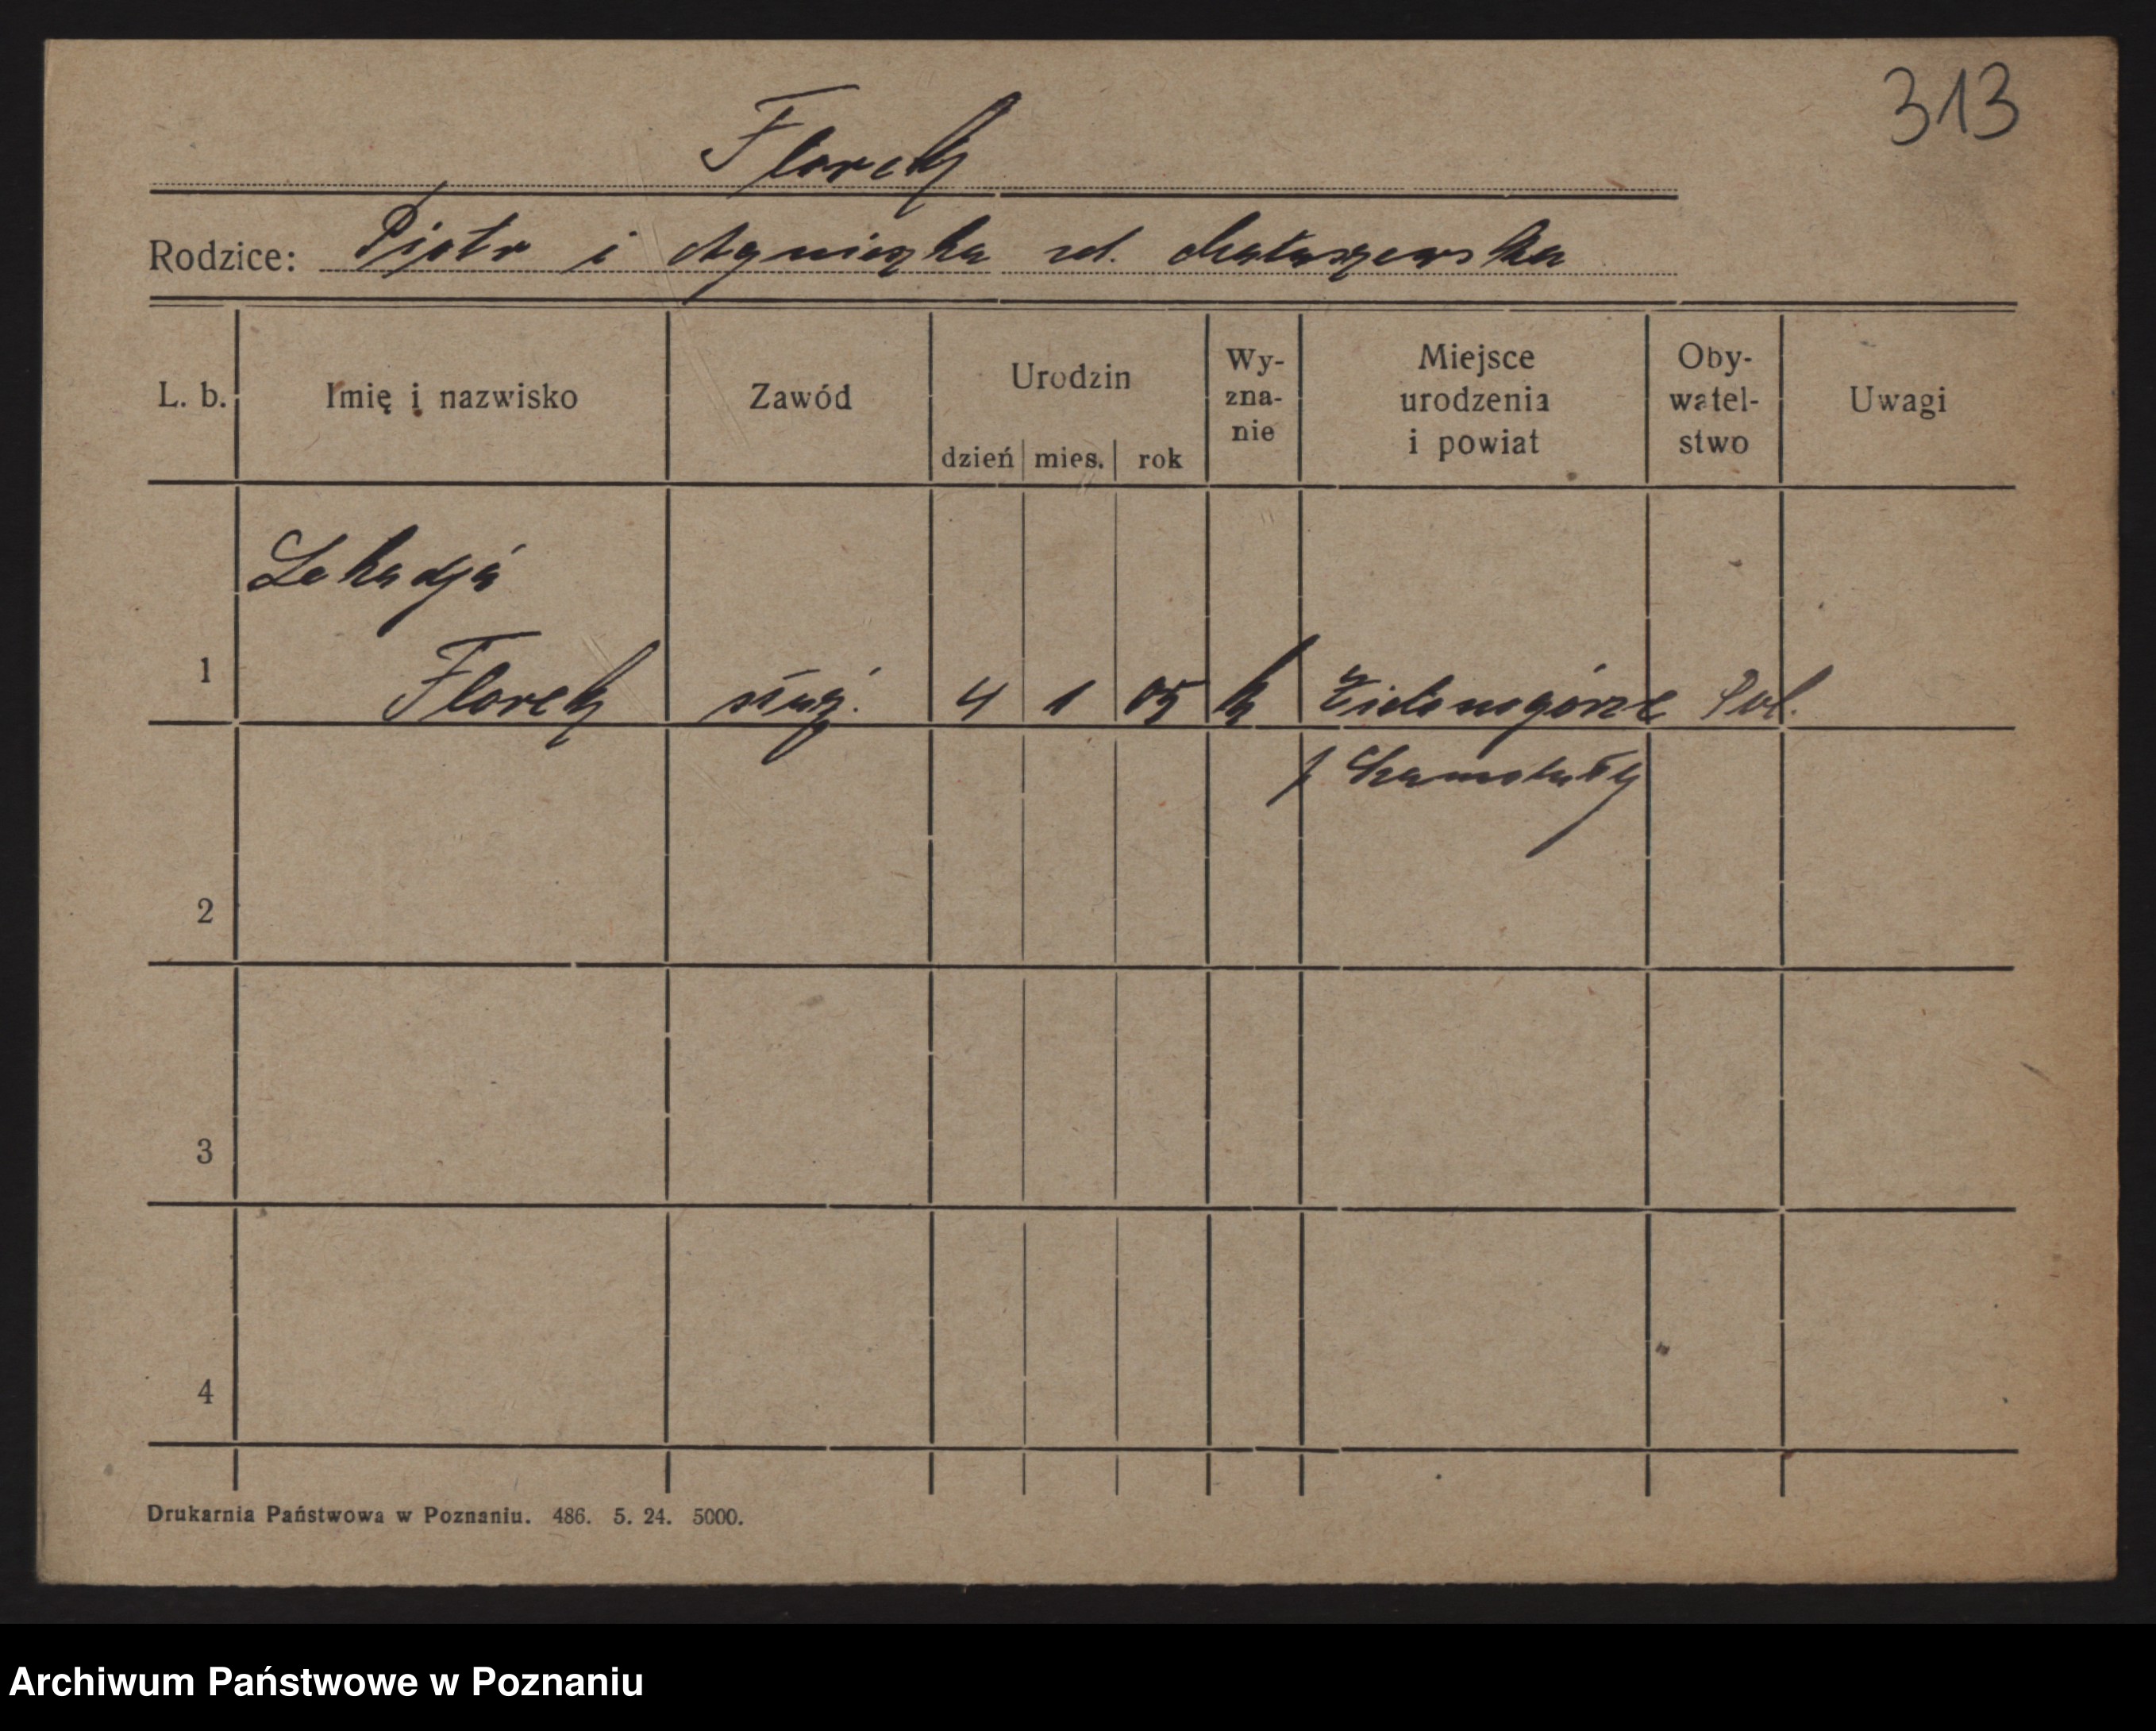 313
Florek
Rodzice: Piotr i Agnieszka zd. Matuszewska
L. b. Imię i nazwisko Zawód Urodzin dzień mies. rok Wy-zna-nie Miejsce urodzenia i powiat Oby-watel-stwo Uwagi
Lekadja
1 Florek służ. 4 1 05 k Zielonagóra Pol.
p Szamotuły
2
3
4
Drukarnia Państwowa w Poznaniu. 486. 5. 24. 5000.
Archiwum Państwowe w Poznaniu